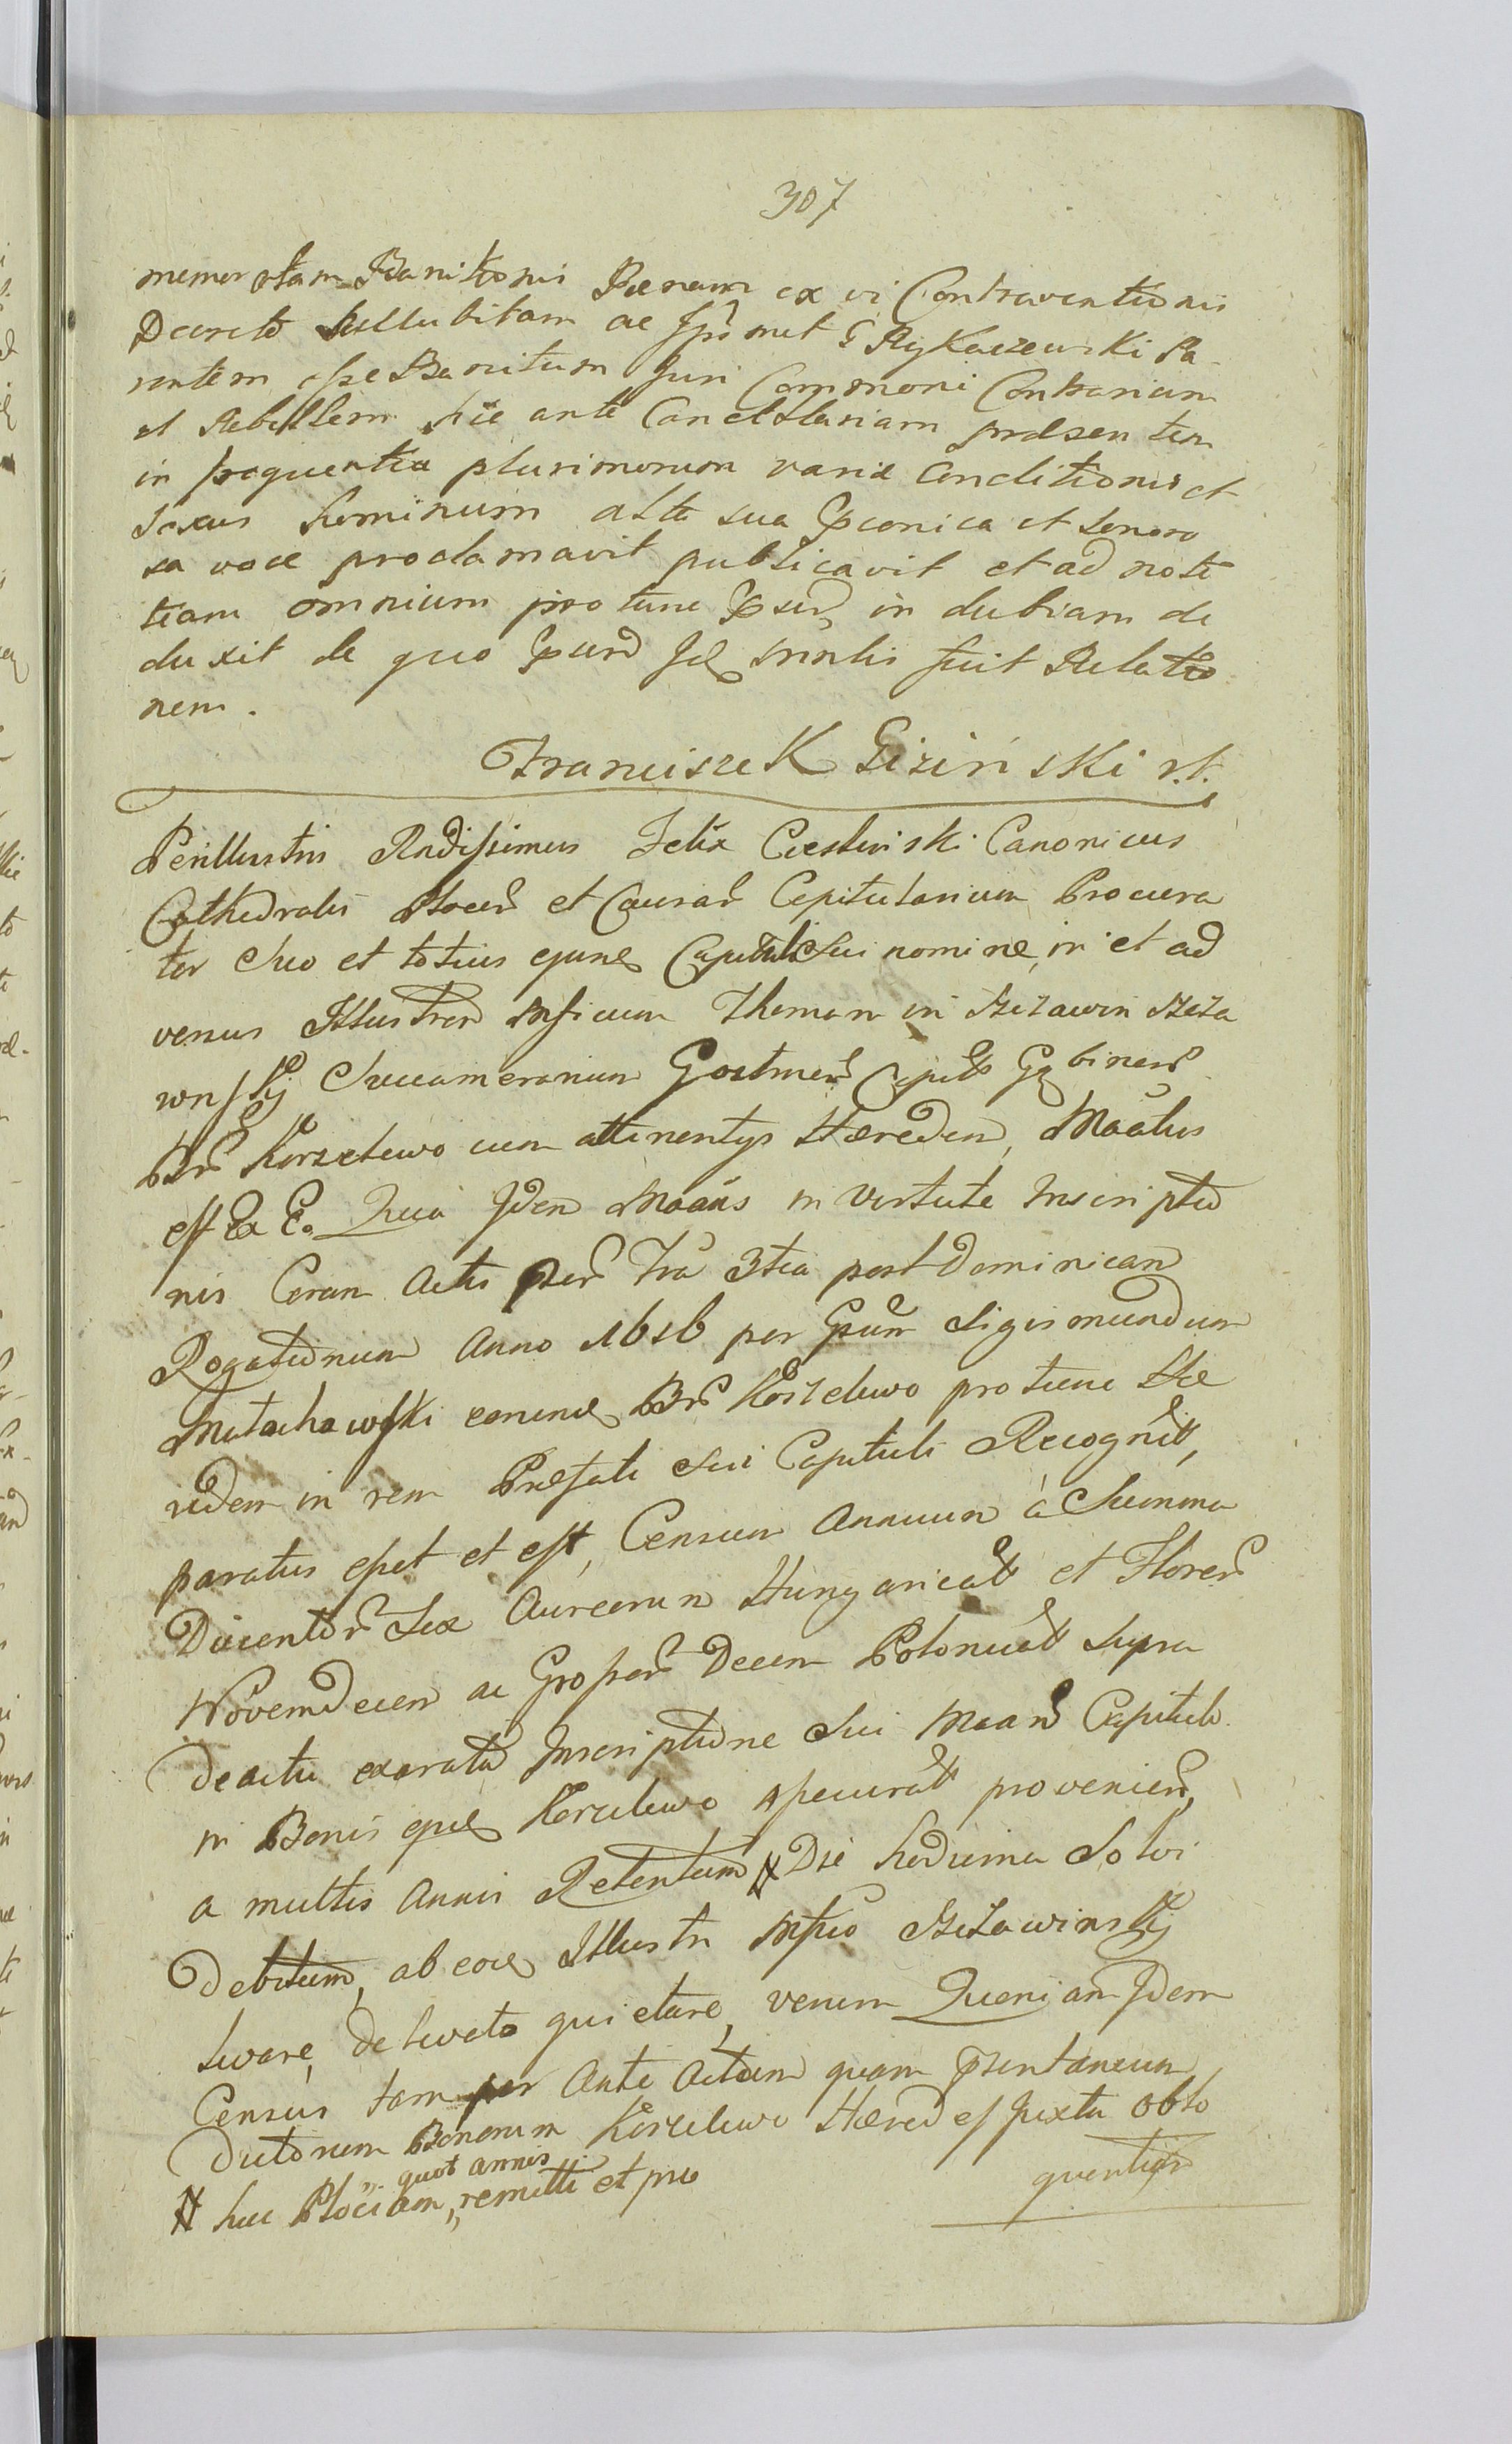 307
memoratam Banitionis Poenam ex vi Contraventionis
Decreto subsubitam ac Ipsmet G Rykaczewski Pa
rentem esse Banitum Juri Communi Contrarium
et Rebellem hic ante Cancellariam praesentem
in frequentia plurimorum variae Conditionis et
Sexus hominum alta sua et Sonoro
sa voce proclamavit publicavit et ad noti
tiam omnium pro tunc in dubiam de
duxit de quo fecit Relatio
nem.
Franciszek Giziński
Perillustris Rndissimus Felix Czestinski Canonicus
Cathedralis Plocen et Causar Capitularium Procura
tor Suo et totius ejusd Capituli Sui nomine, in et ad
versus Illustrem Mficum Thomam in Szczawin Szcza
winskij Succamerarium Gostinen Capit Gąbinen
Bn Korzelewo cum attinentijs Haeredem, Maatus
est Ex Eo Quia Idem Maans in virtute Inscriptio
nis Coram Actis Fra 3tia post Dominicam
Rogationum Anno 1616 per Gsum Sigismundum
Małachowski eorund Bn Korzelewo pro tunc Hae
redem in rem Praefati Sui Capituli Recognit,
paratus esset et est, Censum Annuum à Summa
Ducentor Sex Aureorum Hungarical et Floren
Novemdecem ac Grossor Decem Polonical Supra
de actu exarata Inscriptione Sui Maan Capitulo
in Bonis Korzelewo assecurat provenien,
a multis Annis Retentum # Die hodierna Solvi
Debitum, ab eod Illustri Mfico Szczawinskij
levare, de levato quietare, verum Quoniam Idem
Census tam per Ante Actum quam psentaneum
Dictorum Bonorum Korzelewo Haeredes Juxta Oblo
quentiam
# huc Plociam, quot annis remitti et pro